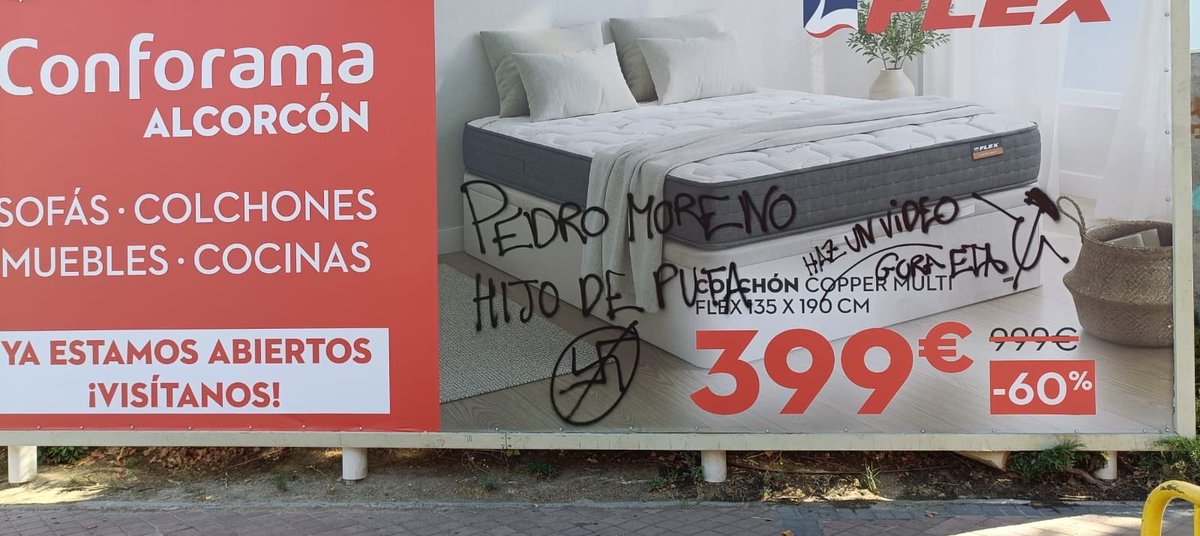 Conforama
ALCORCÓN
SOFÁS · COLCHONES
MUEBLES · COCINAS
YA ESTAMOS ABIERTOS
¡VISÍTANOS!
FLEX
FLEX
PEDRO MORENO
HIJO DE PUTA
HAZ UN VIDEO
GORA ETA
COLCHÓN COPPER MULTI
FLEX 135 X 190 CM
399€
999€
-60%